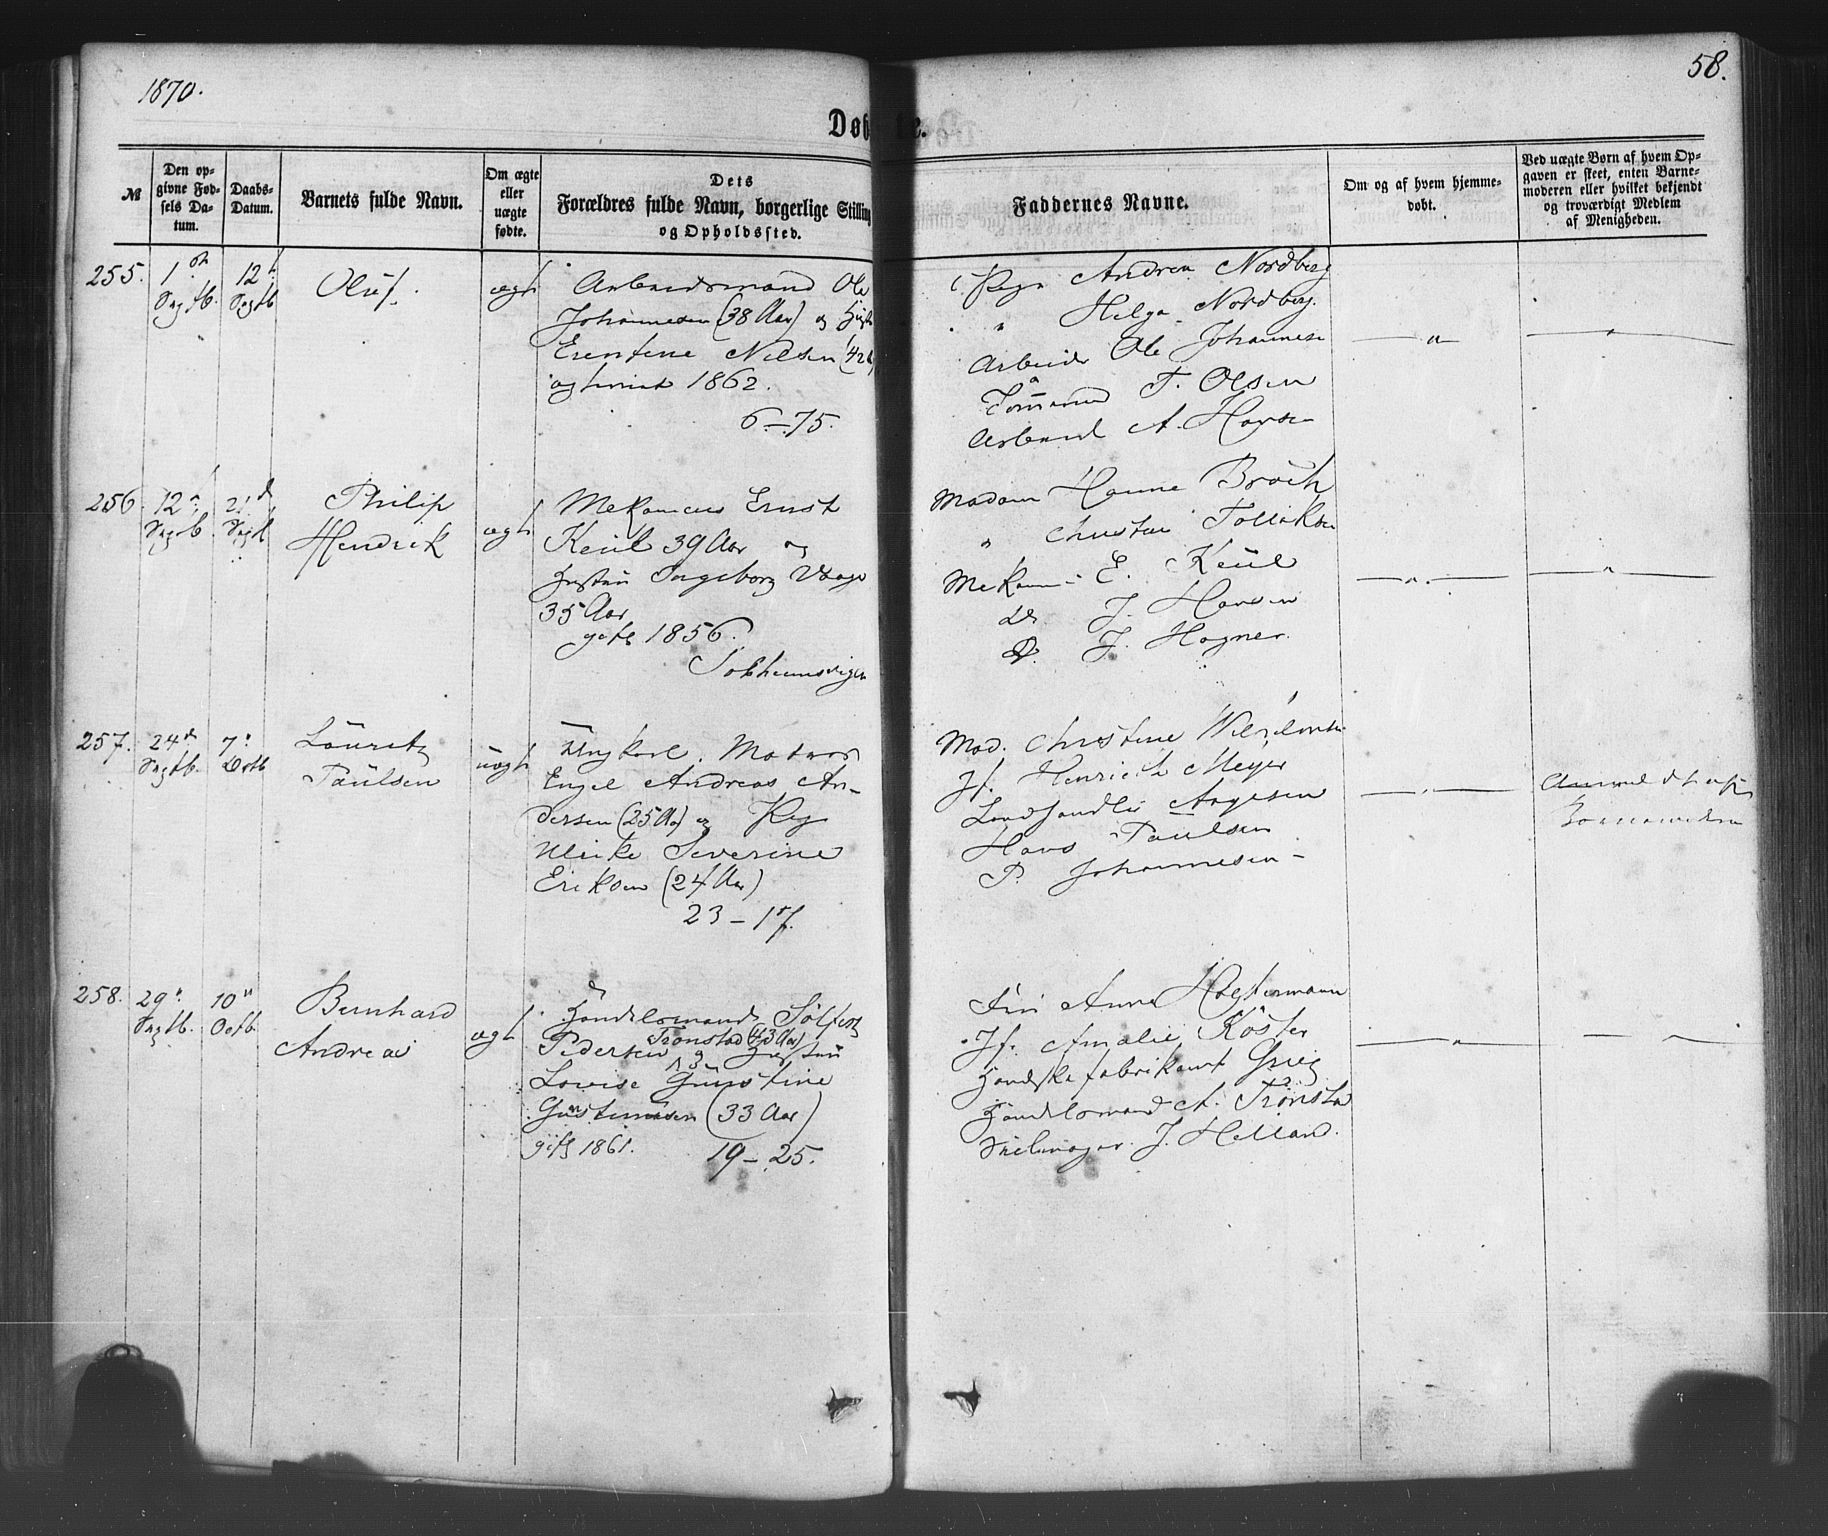 1870.
58.
Døbte.
№
Den opgivne Fødsels Datum.
Daabs-Datum.
Barnets fulde Navn.
Om ægte eller uægte fødte.
Dets Forældres fulde Navn, borgerlige Stilling og Opholdssted.
Faddernes Navne.
Om og af hvem hjemmedøbt.
Ved uægte Børn af hvem Opgaven er skeet, enten Barnemoderen eller hvilket bekjendt og troværdigt Medlem af Menigheden.
255.
1
Septb.
12
Septb
Oluf.
ægt
Arbeidsmand Ole
Johannesen (38 Aar) og
Nilsen (42
1862.
6-75.
Pige Andrea Nordberg
" Helga Nordberg.
Arbeids Ole Johannesen
T. Olsen
Arbeid A. Hansen
— " —
"
256
12
Septb.
21
Septb
Philip
Hendrik
ægt
Mekanicus Ernst
Keül 39 Aar og
Hustru Ingeborg Vaage
35 Aar
gift 1856.
Madam Hanne Broch
" Christine
Mekani E. Keül
Do J. Hansen
Do. J. Hagner.
— " —
"
257.
24
Septb.
7
Octb
Lauritz
Paulsen
uægt
Ungkarl. Matros
Engel Andreas An-
dersen (25 Aar) og Pig
Ulrike Severine
Eriksen (24 Aar)
23-17.
Mad. Christine
Jf. Henriette Meyer
Landhandler Aagesen
Hans Paulsen
P. Johannesen -
— " —
Anmeldt af
Barnemoderen
258.
29
Septb.
10
Octb.
Bernhard
Andreas
ægt
Handelsmand Sølfest
Tronstad (43 Aar)
Pedersen og Hustru
Lovise Gustine
(33 Aar)
gift 1861. 19-25.
Anne Holtermann
Jf. Amalie Köster
Handskefabrikant Grieg
Handelsmand A. Trönstad
J. Helland.
— " —
— " —